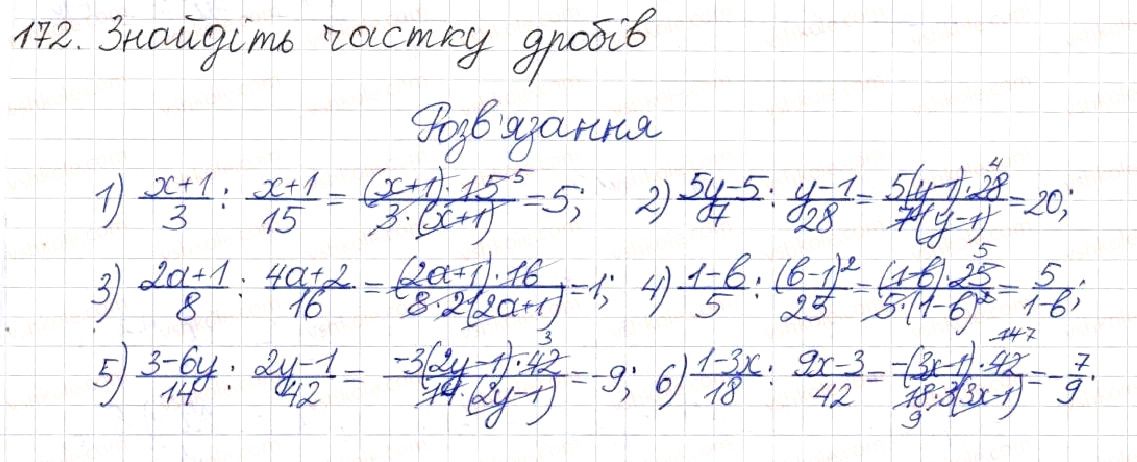 172. Знайдіть частку дробів
Розв'язання
1) (x+1)/3 : (x+1)/15 = ((x+1)·15 5)/(3·(x+1)) = 5; 2) (5y-5)/7 : (y-1)/28 = (5(y-1)·28 4)/(7(y-1)) = 20;
3) (2a+1)/8 : (4a+2)/16 = ((2a+1)·16)/(8·2(2a+1)) = 1; 4) (1-b)/5 : (b-1)²/25 = ((1-b)·25 5)/(5·(1-b)²) = 5/(1-b);
5) (3-6y)/14 : (2y-1)/42 = (-3(2y-1)·42 3)/(14·(2y-1)) = -9; 6) (1-3x)/18 : (9x-3)/42 = (-(3x-1)·42 14 7)/(18 9·3(3x-1)) = -7/9.